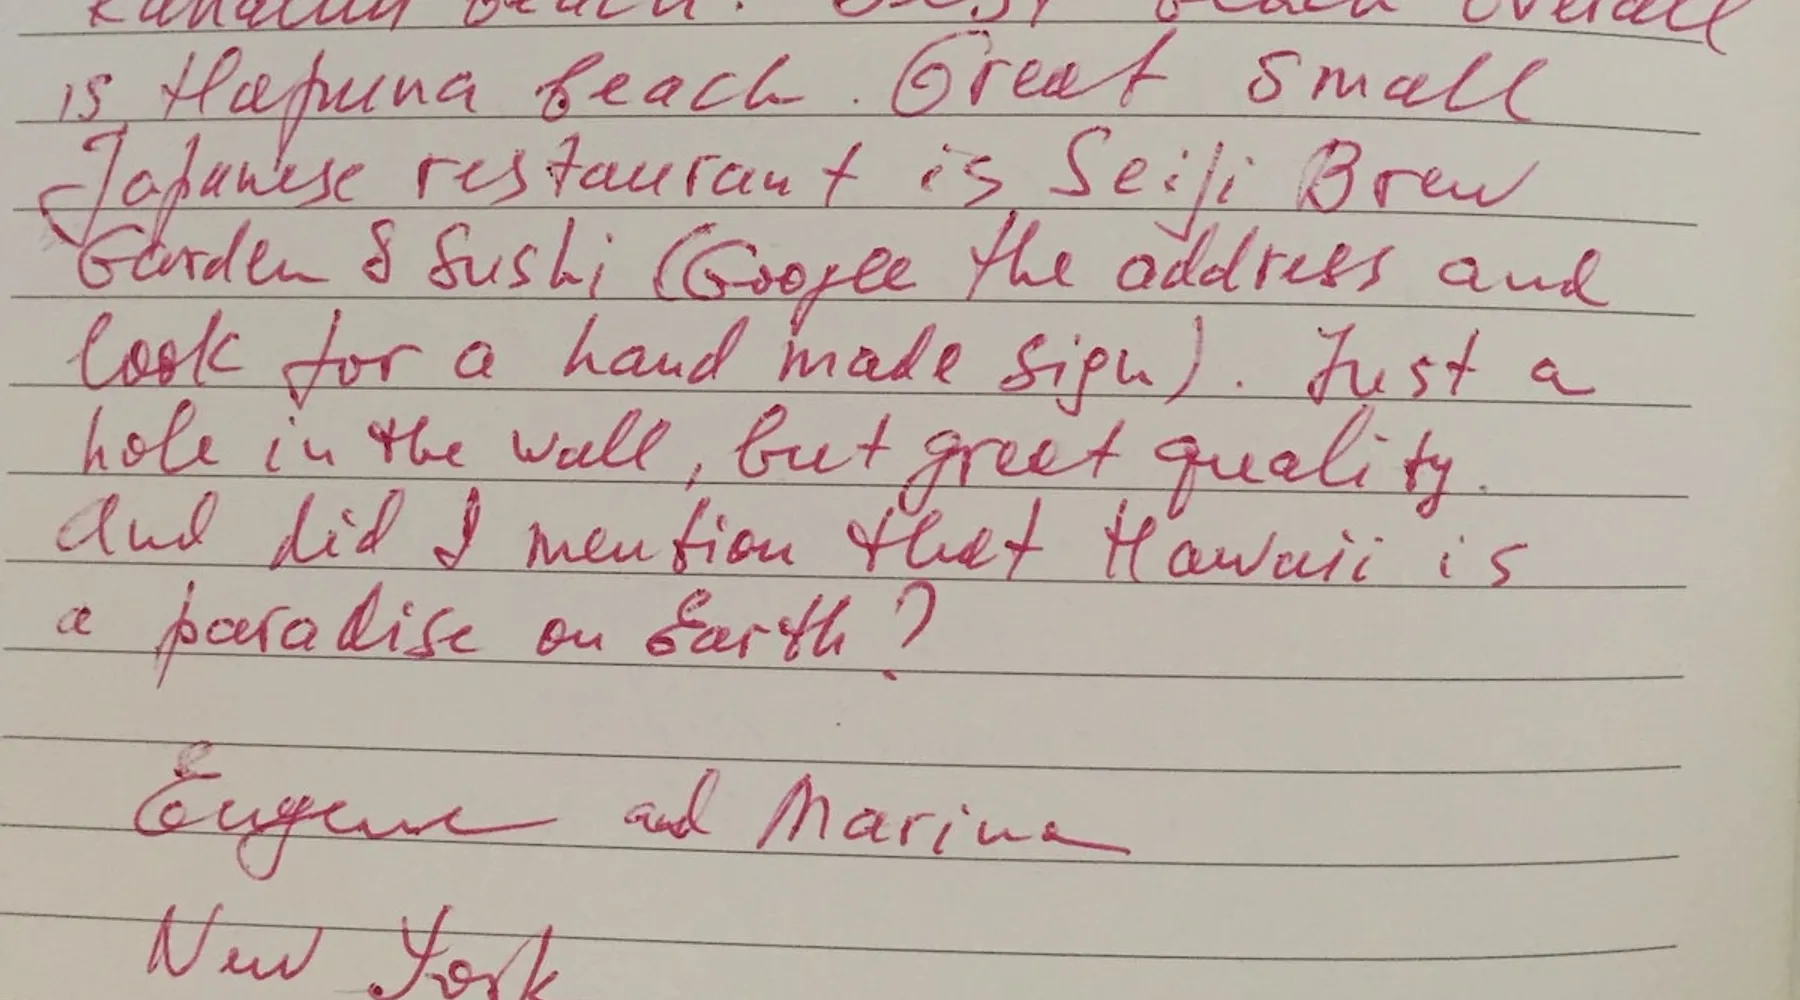 beach. Best beach overall
is Hapuna beach. Great small
Japanese restaurant is Seiji Brew
Garden & Sushi (Google the address and
look for a hand made sign). Just a
hole in the wall, but great quality.
And did I mention that Hawaii is
a paradise on Earth?
Eugene and Marina
New York